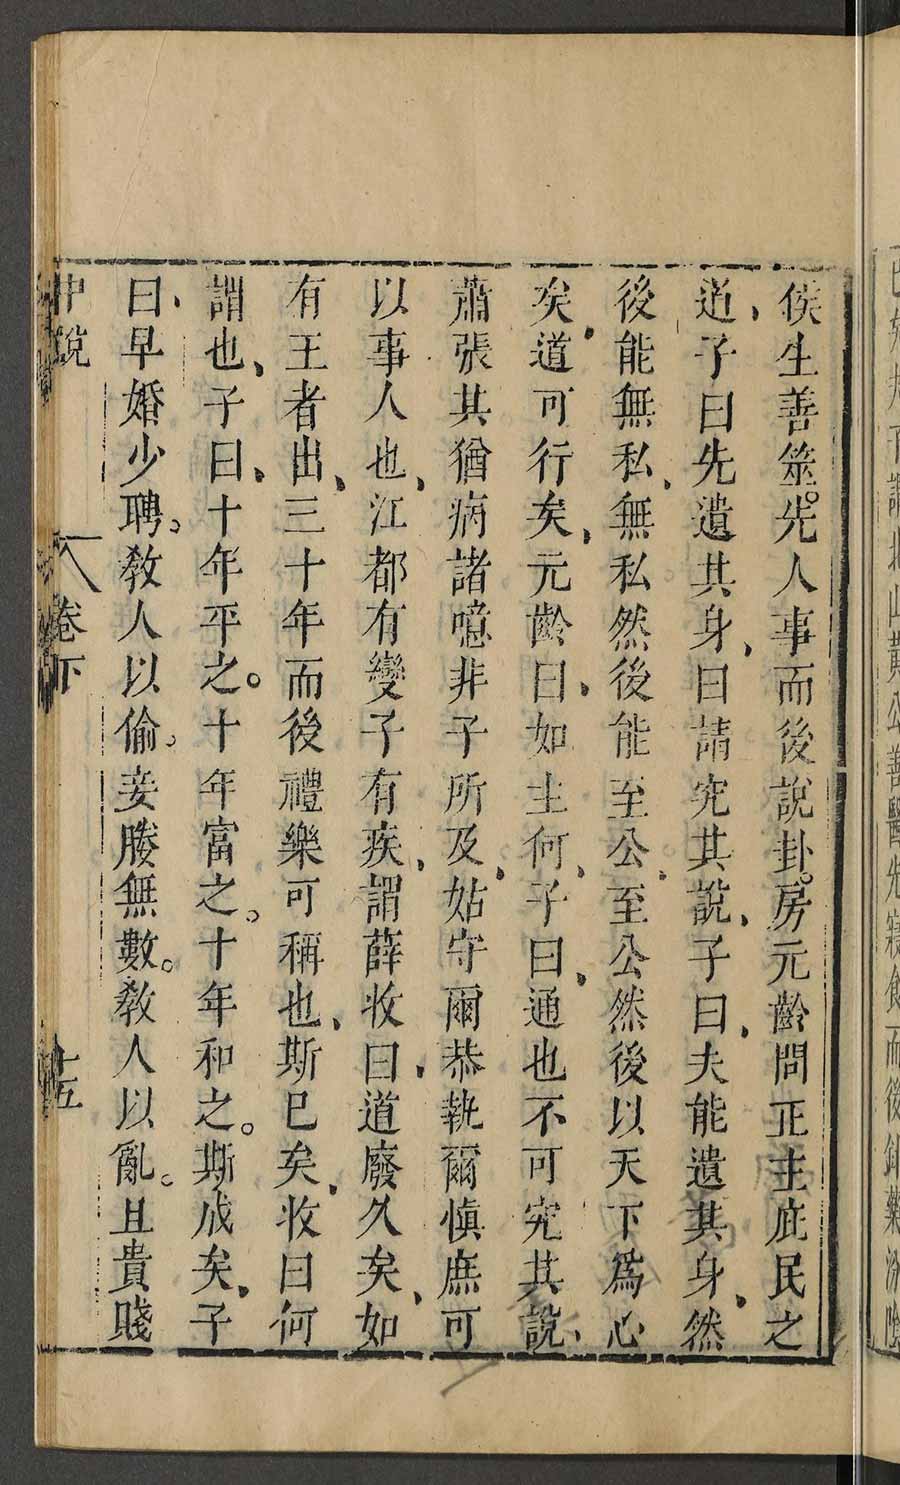 侯生善筮。先人事而後說卦。房元齡問正主庇民之
道、子曰先遺其身、曰請究其說、子曰、夫能遺其身、然
後能無私、無私然後能至公、至公然後以天下爲心
矣、道可行矣、元齡曰、如主何、子曰、通也不可究其說、
蕭張其猶病諸噫非子所及、姑守爾恭執爾愼庶可
以事人也、江都有變子有疾、謂薛收曰、道廢久矣、如
有王者出、三十年而後禮樂可稱也、斯已矣、收曰何
謂也、子曰、十年平之。十年富之。十年和之。斯成矣、子
曰、早婚少聘。敎人以偷。妾媵無數。敎人以亂。且貴賤
中說 卷下 十五